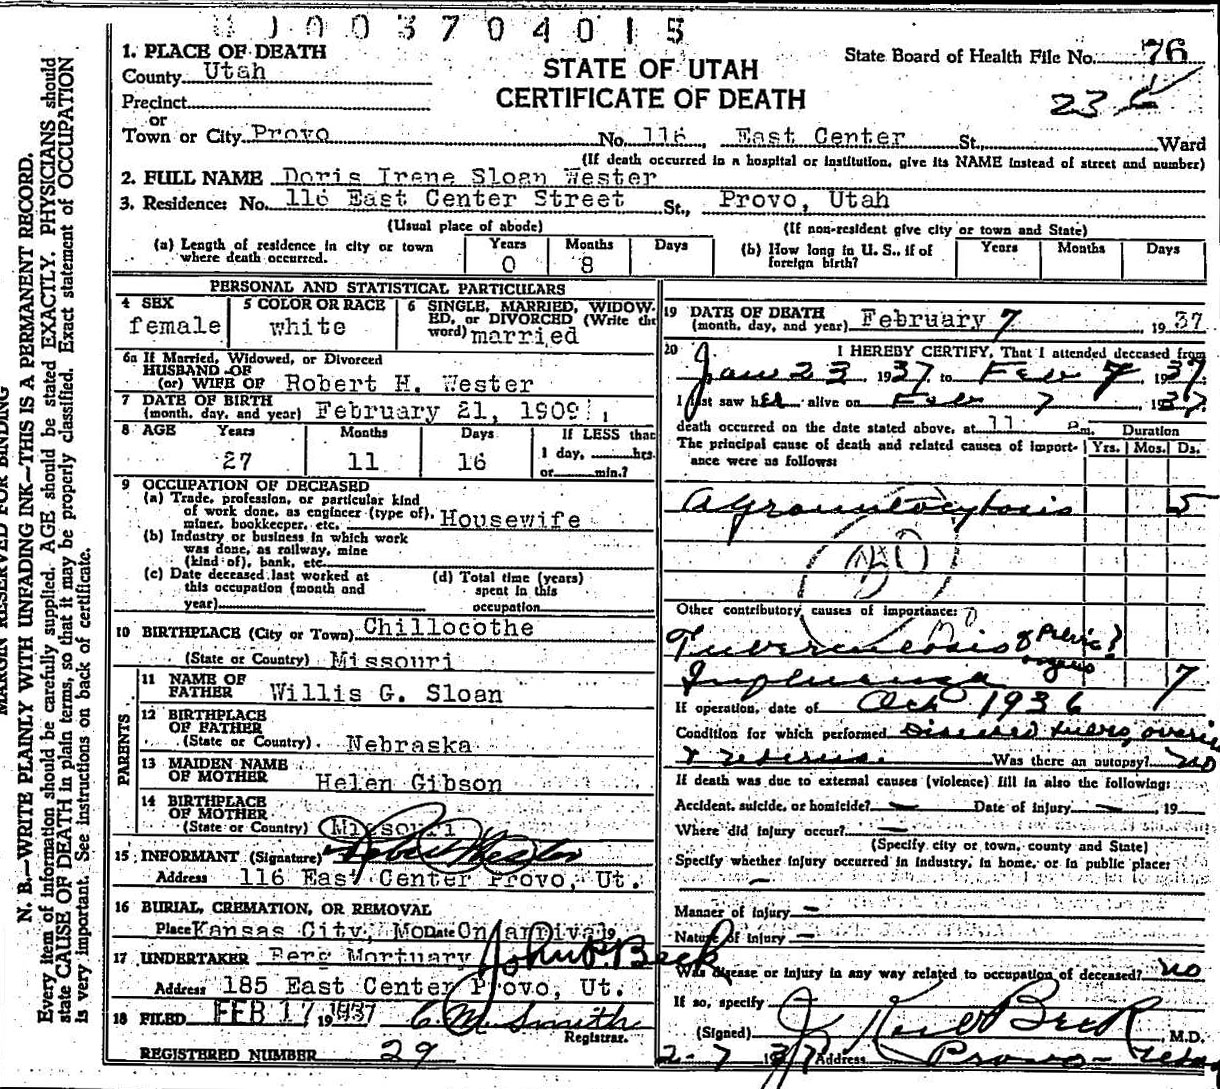 0 0 3 7 0 4 0 1 5
MARGIN RESERVED FOR BINDING
N. B.—WRITE PLAINLY WITH UNFADING INK—THIS IS A PERMANENT RECORD.
Every item of information should be carefully supplied. AGE should be stated EXACTLY. PHYSICIANS should
state CAUSE OF DEATH in plain terms, so that it may be properly classified. Exact statement of OCCUPATION
is very important. See instructions on back of certificate.
1. PLACE OF DEATH
County Utah
Precinct
or
Town or City Provo No. 116, East Center St., Ward
STATE OF UTAH
CERTIFICATE OF DEATH
State Board of Health File No. 76
23
(If death occurred in a hospital or institution, give its NAME instead of street and number)
2. FULL NAME Doris Irene Sloan Wester
3. Residence: No. 116 East Center Street St., Provo, Utah
(Usual place of abode) (If non-resident give city or town and State)
(a) Length of residence in city or town where death occurred. Years 0 Months 8 Days
(b) How long in U. S., if of foreign birth? Years Months Days
PERSONAL AND STATISTICAL PARTICULARS
4 SEX female
5 COLOR OR RACE white
6 SINGLE, MARRIED, WIDOW-
ED, or DIVORCED (Write the
word) married
6a If Married, Widowed, or Divorced
HUSBAND OF
(or) WIFE OF Robert H. Wester
7 DATE OF BIRTH
(month, day, and year) February 21, 1909
8 AGE Years 27 Months 11 Days 16 If LESS than
1 day, hrs.
or min.?
9 OCCUPATION OF DECEASED
(a) Trade, profession, or particular kind
of work done, as engineer (type of),
miner, bookkeeper, etc. Housewife
(b) Industry or business in which work
was done, as railway, mine
(kind of), bank, etc.
(c) Date deceased last worked at
this occupation (month and
year)
(d) Total time (years)
spent in this
occupation
10 BIRTHPLACE (City or Town) Chillocothe
(State or Country) Missouri
PARENTS
11 NAME OF
FATHER Willis G. Sloan
12 BIRTHPLACE
OF FATHER
(State or Country) Nebraska
13 MAIDEN NAME
OF MOTHER Helen Gibson
14 BIRTHPLACE
OF MOTHER
(State or Country) Missouri
15 INFORMANT (Signature) Robert Wester
Address 116 East Center Provo, Ut.
16 BURIAL, CREMATION, OR REMOVAL
Place Kansas City, Mo Date On arrival 19
17 UNDERTAKER Berg Mortuary John P Beck
Address 185 East Center Provo, Ut.
18 FILED FEB 17 1937 C M Smith
Registrar.
REGISTERED NUMBER 29
19 DATE OF DEATH
(month, day, and year) February 7, 1937
20 I HEREBY CERTIFY, That I attended deceased from
Jan 23 1937, to Feb 7, 1937
I last saw her alive on Feb 7, 1937
death occurred on the date stated above, at 11 m. Duration
The principal cause of death and related causes of import-
ance were as follows: Yrs. Mos. Ds.
Agranulocytosis 5
Other contributory causes of importance:
Tuberculosis of Pelvic organs?
Influenza 7
If operation, date of Oct 1936
Condition for which performed Diseased tubes, ovaries
& uterus. Was there an autopsy? no
If death was due to external causes (violence) fill in also the following:
Accident, suicide, or homicide? — Date of injury — 19
Where did injury occur? —
(Specify city or town, county and State)
Specify whether injury occurred in industry, in home, or in public place:
—
Manner of injury —
Nature of injury —
Was disease or injury in any way related to occupation of deceased? no
If so, specify
(Signed) J Karl Beck M.D.
2-7 1937 Address Provo - Utah